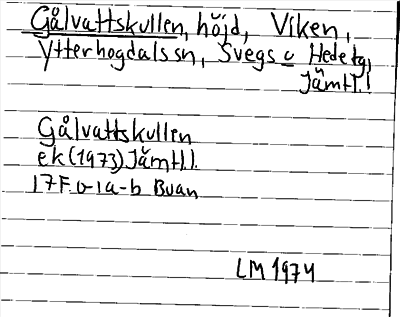 Gålvattskullen, höjd, Viken,
Ytterhogdals sn, Svegs o Hede tg,
Jämtl. l
Gålvattskullen
ek (1973) Jämtl. l.
17F 0-1a-b Buan
LM 1974